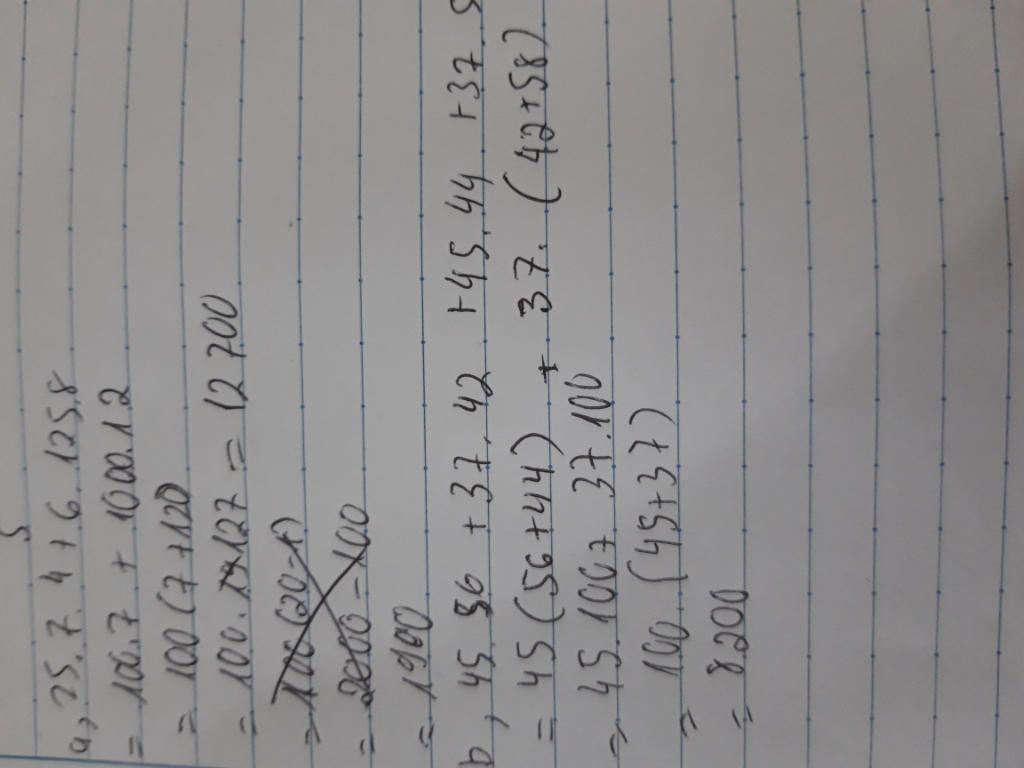 5
a, 25.7.4 + 6.125.8
= 100.7 + 1000.12
= 100 (7+120
= 100. 127 = 12 700
= 100 (20-1)
= 2000 - 100
= 1900
b, 45.56 + 37.42 + 45.44 + 37.5
= 45 (56+44) + 37. (42+58)
= 45.100+ 37.100
= 100. (45+37)
= 8200